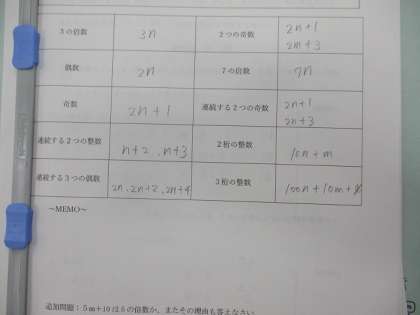 3の倍数 3n 2つの奇数 2n+1
2m+3
偶数 2n 7の倍数 7n
奇数 2n+1 連続する2つの奇数 2n+1
2n+3
連続する2つの整数 n+2、n+3 2桁の整数 10n+m
連続する3つの偶数 2n、2n+2、2n+4 3桁の整数 100n+10m+
～MEMO～
追加問題：5m+10は5の倍数か。またその理由も答えなさい。